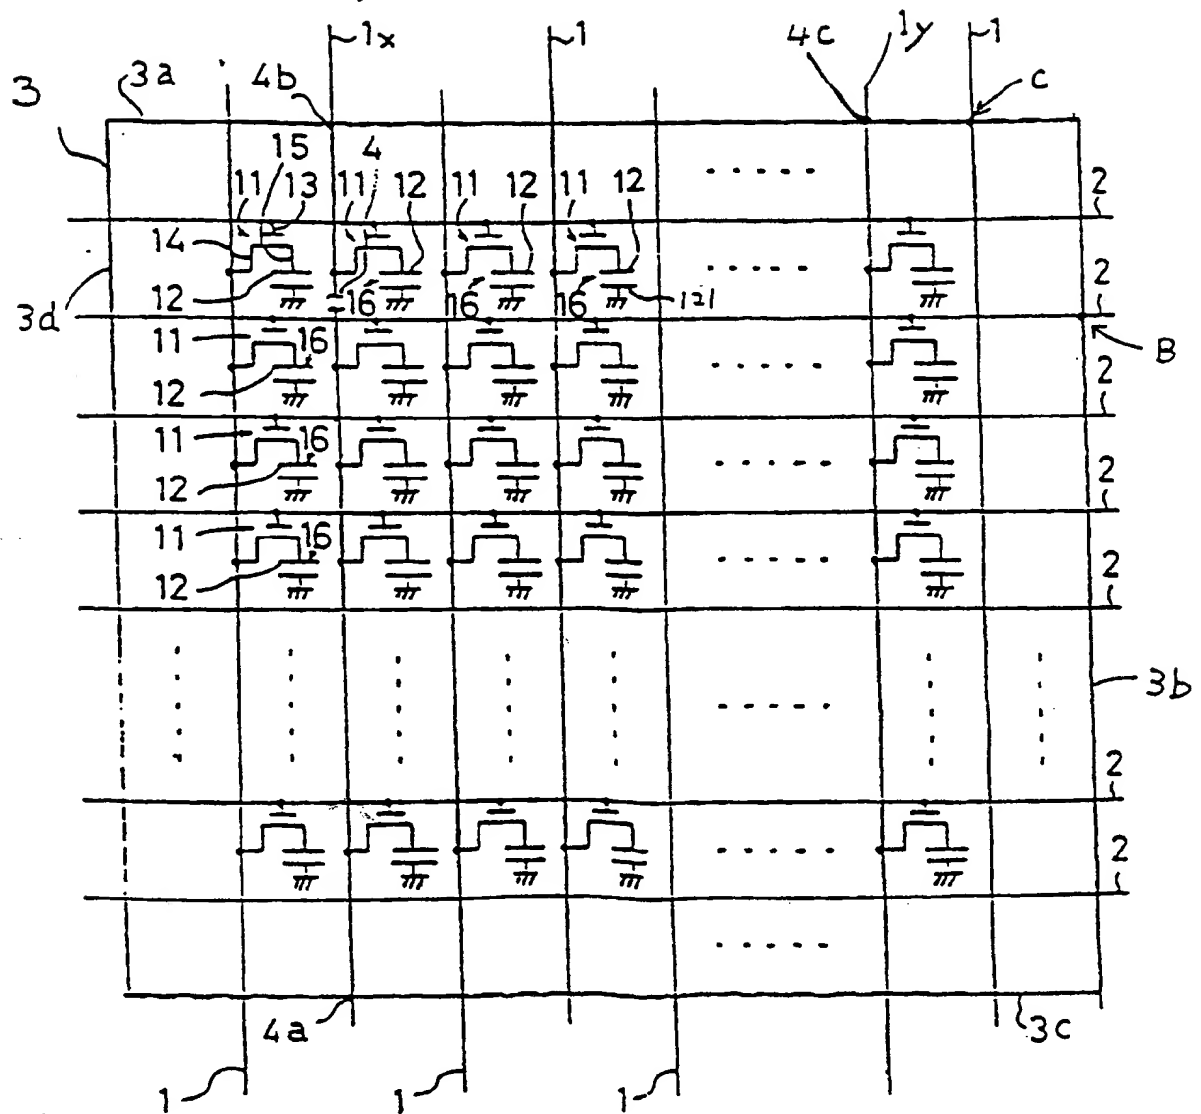 1x 1 4c 1y 1
3 3a 4b C
15 4
11 13 11 12 11 12 11 12 2
14
12 16 16 16 121 2
3d
11 16 B
12 2
11 16
12 2
11 16
12 2
3b
2
2
4a 3c
1 1 1